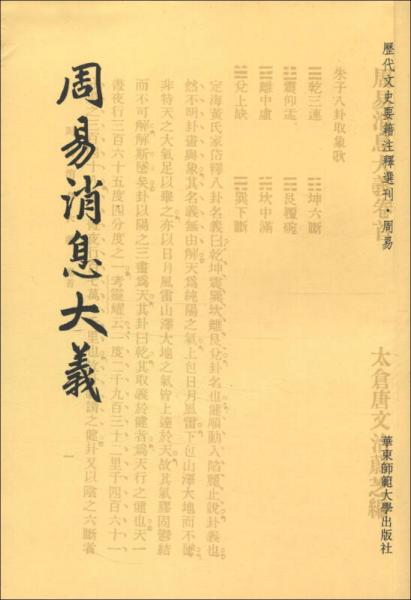 歷代文史要籍注釋選刊·周易
華東師範大學出版社
周易消息大義
周易消息大義卷首
太倉唐文治蔚芝編
朱子八卦取象歌
☰乾三連 ☷坤六斷
☳震仰盂 ☶艮覆碗
☲離中虛 ☵坎中滿
☱兌上缺 ☴巽下斷
定海黃氏家岱釋八卦名義曰乾坤震巽坎離艮兌卦名也健順動入陷麗止說卦義也
然不明卦畫與象其名義無由解天爲純陽之氣上包日月風雷下包山澤大地而不墜
非特天之大氣足以舉之亦以日月風雷山澤大地之氣皆上達於天故其氣膠固鬱結
而不可解解斯墜矣卦以陽之三畫爲天其卦曰乾其取義於健者爲天行之健也天一
晝夜行三百六十五度四分度之一考靈耀云一度二千九百三十二里千四百六十一
謂之健卦又以陰之六斷者
一